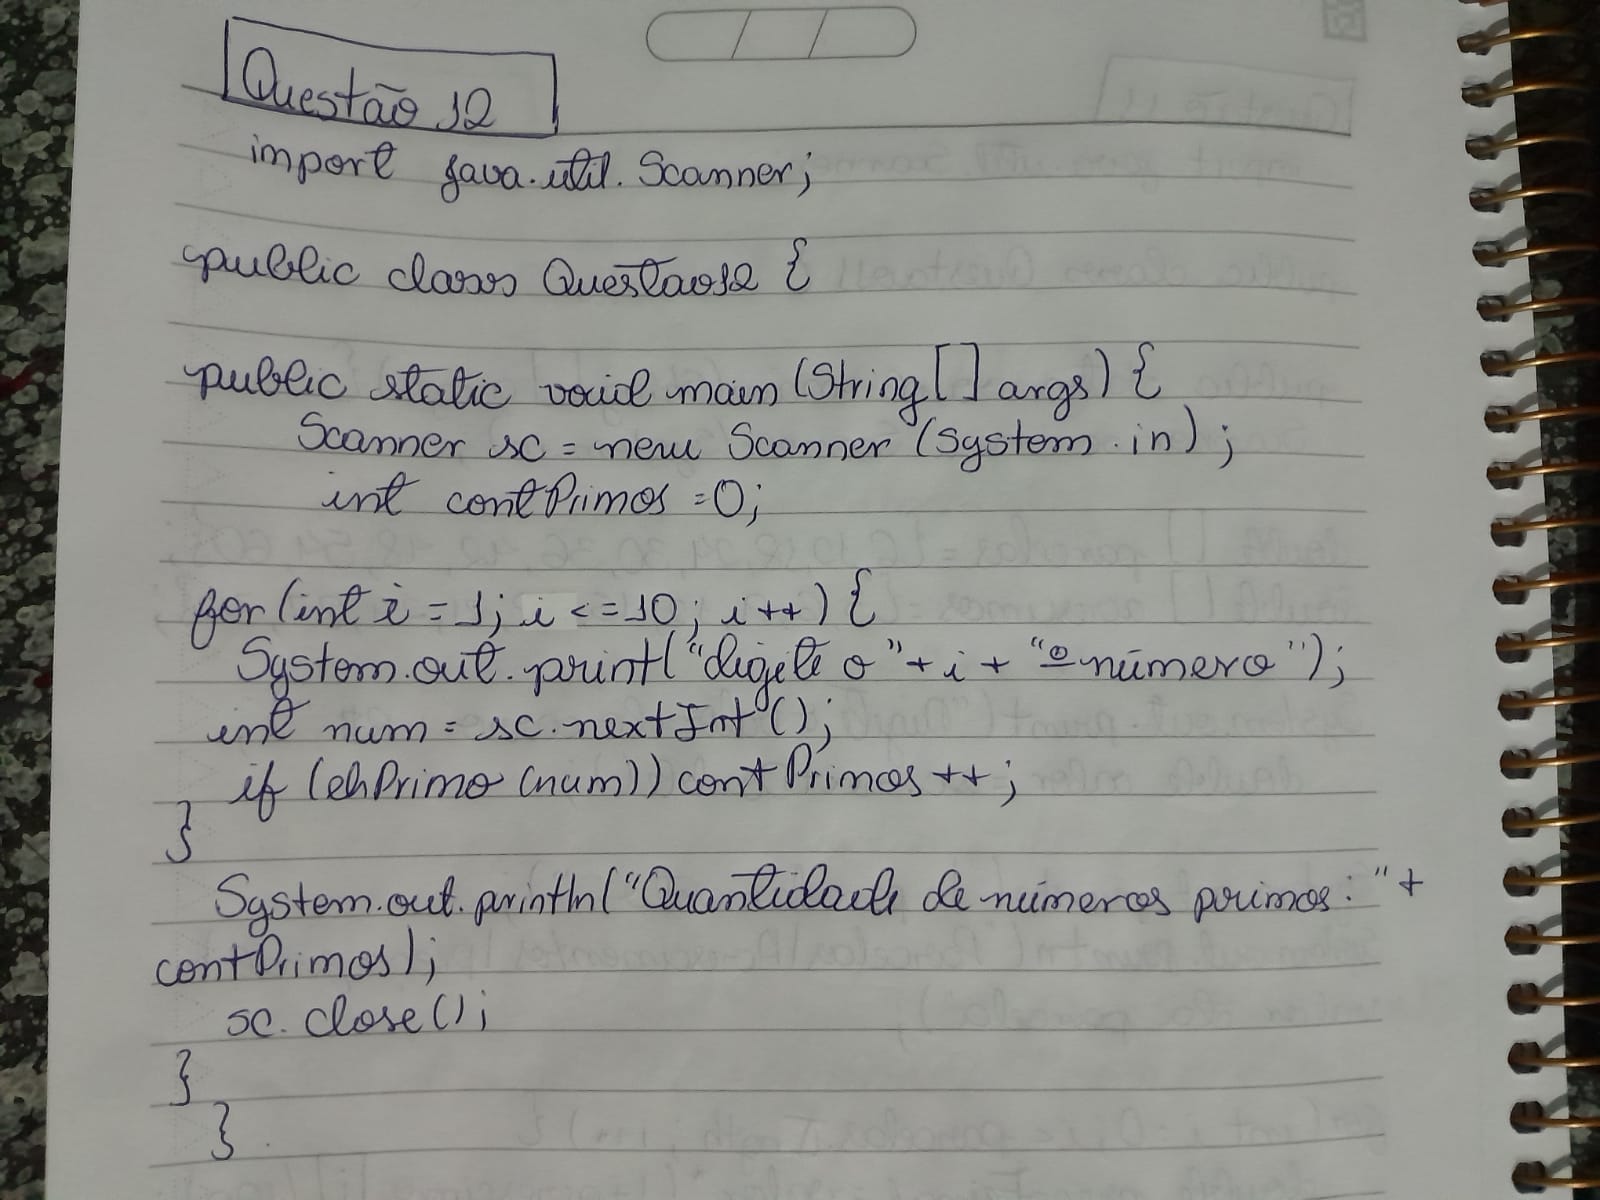 Questão 12
import java.util.Scanner;
public class Questao12 {
public static void main (String[] args) {
Scanner sc = new Scanner (System.in);
int contPrimos =0;
for (int i = 1; i <=10; i++) {
System.out.print("digite o "+ i + "º número");
int num = sc.nextInt();
if (ehPrimo (num)) contPrimos ++;
}
System.out.println("Quantidade de números primos: "+
contPrimos);
sc.close();
}
}